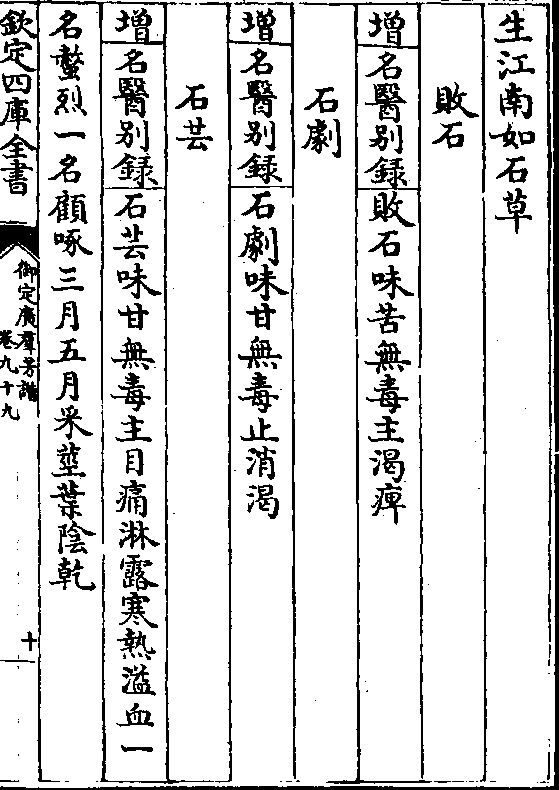 生江南如石草
敗石
增名醫别録敗石味苦無毒主渴痺
石劇
增名醫别録石劇味甘無毒止消渴
石芸
增名醫别録石芸味甘無毒主目痛淋露寒熱溢血一
名螫烈一名顧啄三月五月采莖葉陰乾
欽定四庫全書
御定廣羣芳譜
卷九十九
十